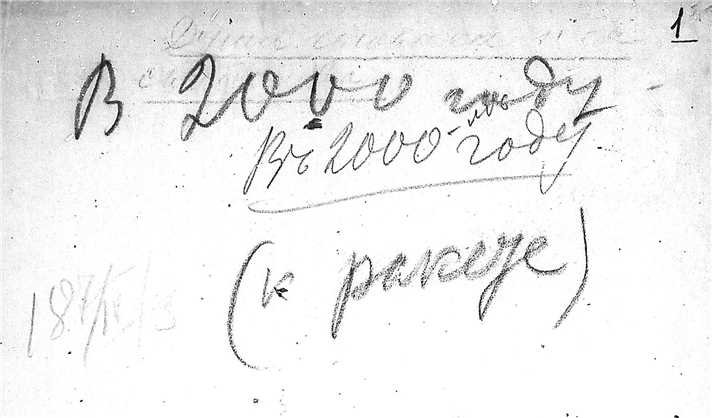 1
В 2000 году
Въ 2000-мъ году
(к ракете)